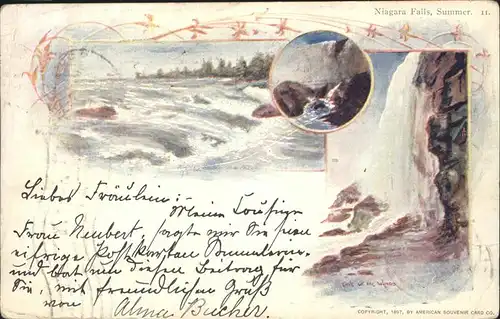 Niagara Falls, Summer. 11.
Liebes Fräulein:- Meine Cousine
Frau Neubert, sagte mir Sie seien
eifrige Postkarten Sammlerin
und bat um diesen Beitrag für
Sie, mit freundlichem Gruß
von Alma Bucher.
COPYRIGHT, 1897, BY AMERICAN SOUVENIR CARD CO.